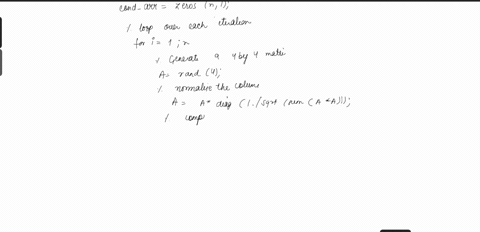 cond_arr = zeros (n, 1);
% loop over each iteration
for i = 1 : n
% Generate a 4 by 4 matri
A = rand (4);
% normalize the column
A = A* diag (1./sqrt (sum (A *A)));
% comp